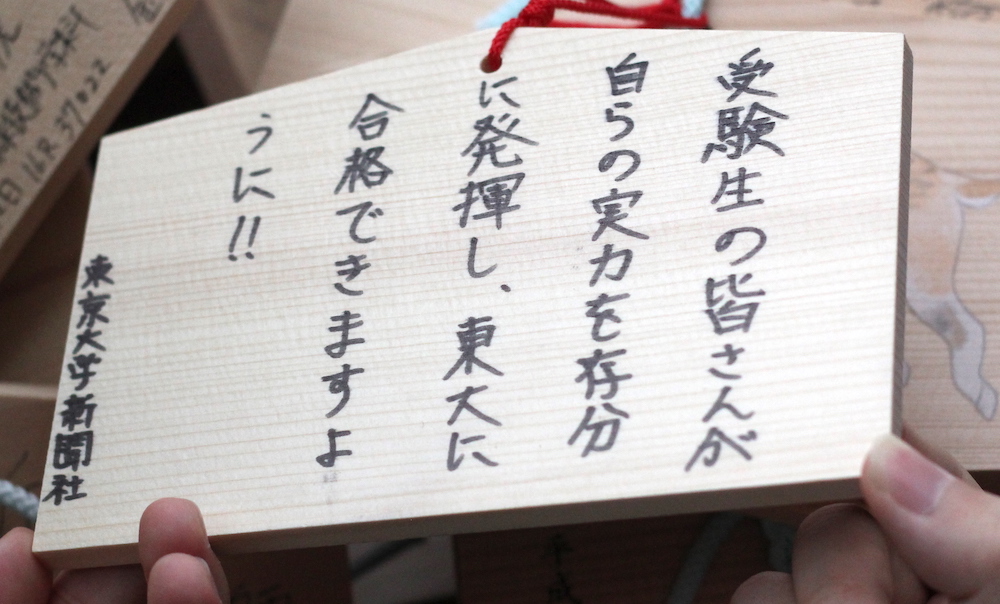 受験生の皆さんが
自らの実力を存分
に発揮し、東大に
合格できますよ
うに!!
東京大学新聞社